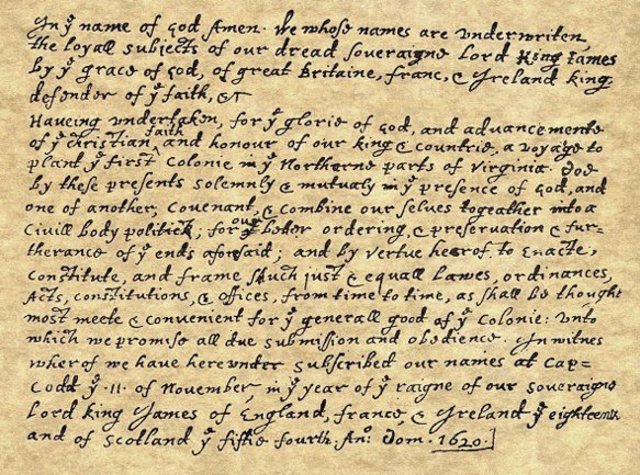 In yͤ name of god Amen. We whose names are underwriten,
the loyall subjects of our dread soveraigne Lord King James
by yͤ grace of god, of great Britaine, franc, & Ireland king,
defender of yͤ faith, &c
Haveing undertaken, for yͤ glorie of god, and advancemente
of yͤ christian faith and honour of our king & countrie, a voyage to
plant yͤ first colonie in yͤ Northerne parts of Virginia. Doe
by these presents solemnly & mutualy in yͤ presence of god, and
one of another, covenant, & combine our selves togeather into a
Civill body politick; for our better ordering, & preservation & fur=
therance of yͤ ends aforesaid; and by vertue hearof, to enacte,
constitute, and frame shuch just & equall Lawes, ordinances,
Acts, constitutions, & offices, from time to time, as shall be thought
most meete & convenient for yͤ generall good of yͤ colonie: unto
which we promise all due submission and obedience. In witnes
wherof we have hereunder subscribed our names at Cap=
Codd yͤ .11. of November, in yͤ year of yͤ raigne of our soveraigne
Lord king James of England, france, & Ireland yͤ eighteenth
and of Scotland yͤ fiftie fourth. Anº: Dom. 1620.